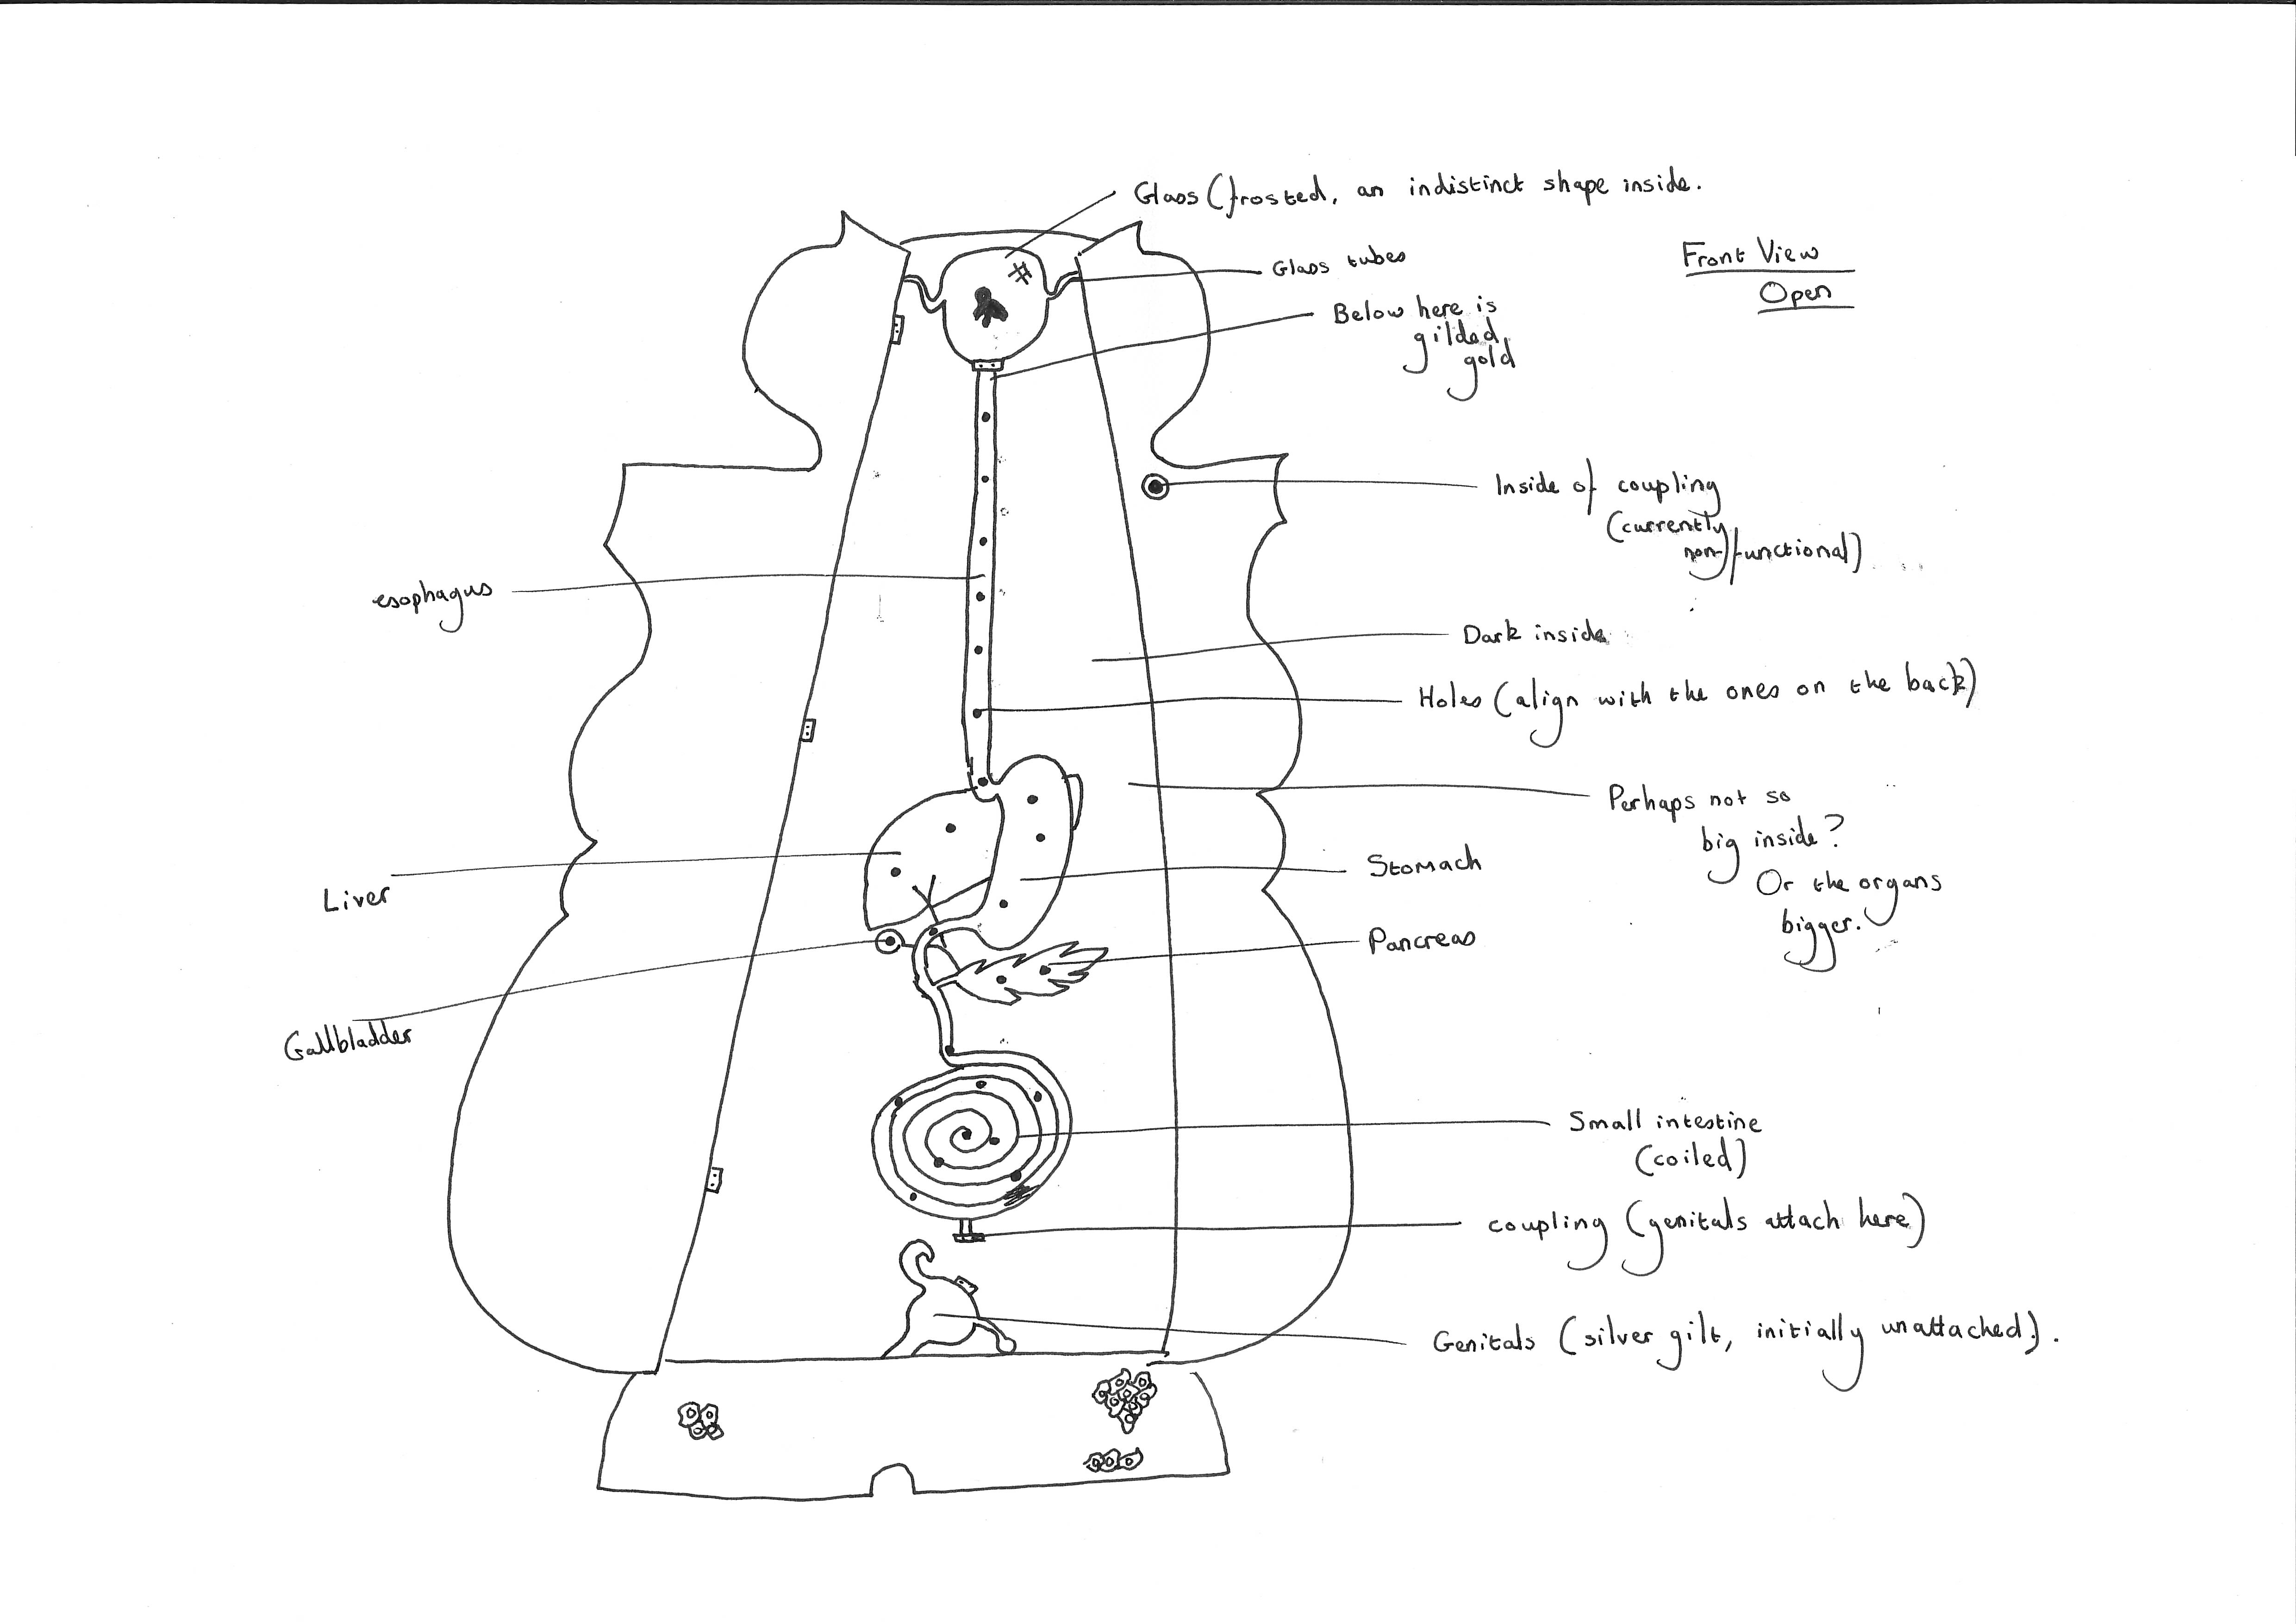 Glass (frosted, an indistinct shape inside.
Front View
Open
Glass tubes
Below here is
gilded,
gold
Inside of coupling
(currently
non-functional)
esophagus
Dark inside
Holes (align with the ones on the back)
Perhaps not so
big inside?
Or the organs
bigger.
Stomach
Liver
Pancreas
Gallbladder
Small intestine
(coiled)
coupling (genitals attach here)
Genitals (silver gilt, initially unattached).